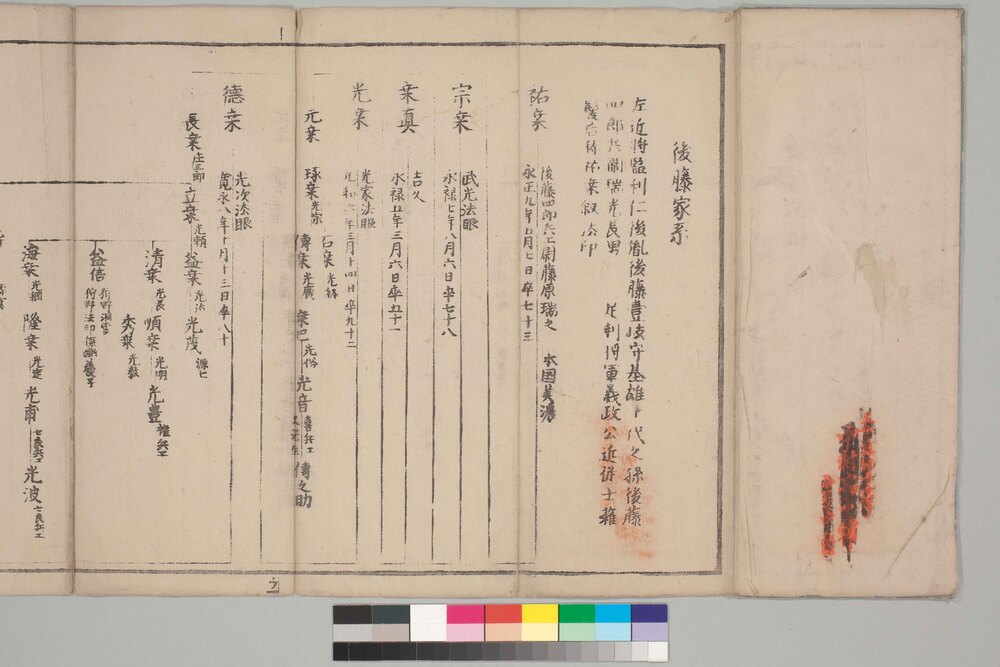 後藤家系
左近将監利仁後胤後藤豊後守基雄十代之孫後藤
四郎兵衛瑞光長男 足利将軍義政公近侍士雖
祐乗叙法印
祐乗
後藤四郎兵工尉藤原瑞之 本国美濃
永正九年五月七日卒七十三
宗乗
武光法眼
永禄七年八月六日卒七十八
乗真
吉久
永禄五年三月六日卒五十一
光乗
光家法眼
元和六年三月十四日卒九十二
元乗
琢乗光宗
石乗
傳乗 乗巴光俗 光音喜兵工 傳之助
徳乗
光次法眼
寛永八年十月十三日卒八十
長乗庄三郎 立乗光頼 益乗光法 光茂源七
清乗光長 順乗光明 光豊権兵工
秀乗光数
益信
狩野洞雲
海乗光綱 隆乗 光爾七良兵工 光波七良兵工